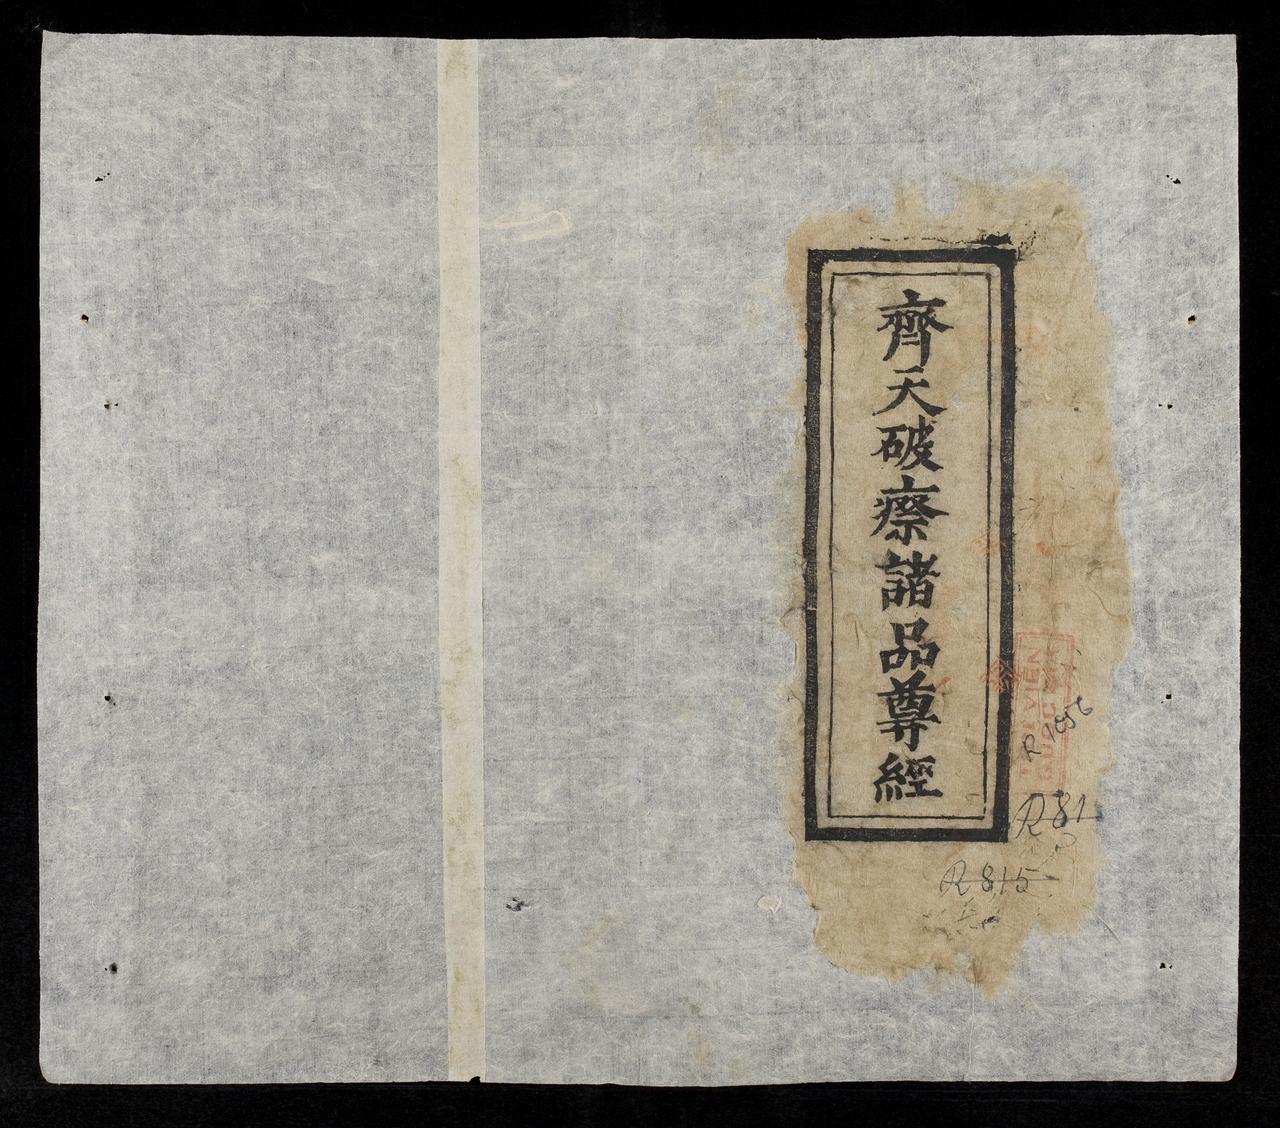 齊天破瘵諸品尊經
R 81
R 815